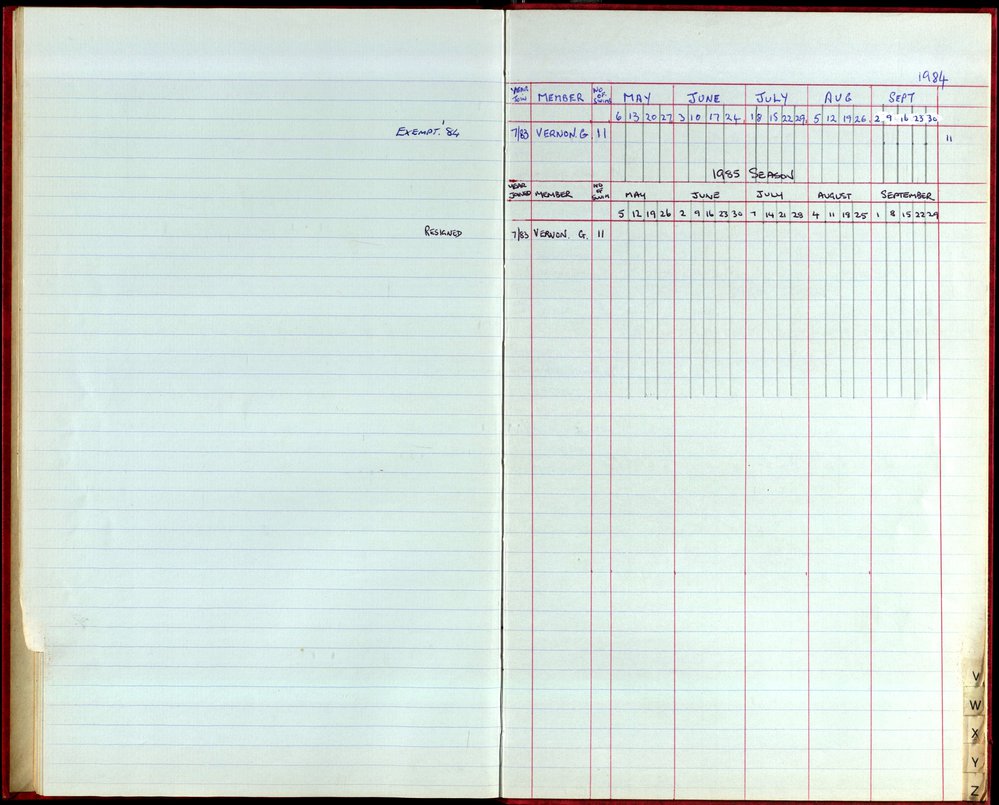 1984
YEAR JOIN MEMBER NO. OF SWIMS MAY JUNE JULY AUG SEPT
6 13 20 27 3 10 17 24 1 8 15 22 29 5 12 19 26 2 9 16 23 30
EXEMPT. '84 7/83 VERNON. G. 11 11
1985 SEASON
YEAR JOINED MEMBER NO OF SWIM MAY JUNE JULY AUGUST SEPTEMBER
5 12 19 26 2 9 16 23 30 7 14 21 28 4 11 18 25 1 8 15 22 29
RESIGNED 7/83 VERNON. G. 11
V
W
X
Y
Z